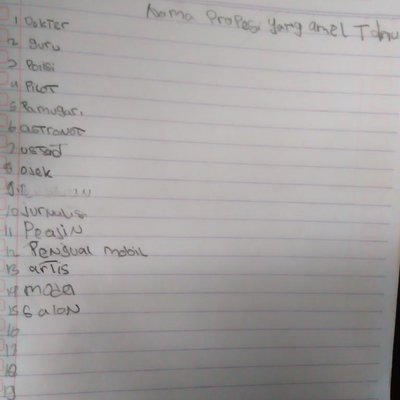 Nama Propesi yang amel Tahu
1 Dokter
2 guru
3 Polisi
4 Pilot
5 Pramugari
6 astronot
7 ustad
8 ojek
9
10 Jurnalis
11 Peasin
12 Pengual mobil
13 artis
14 model
15 Salon
16
17
18
19